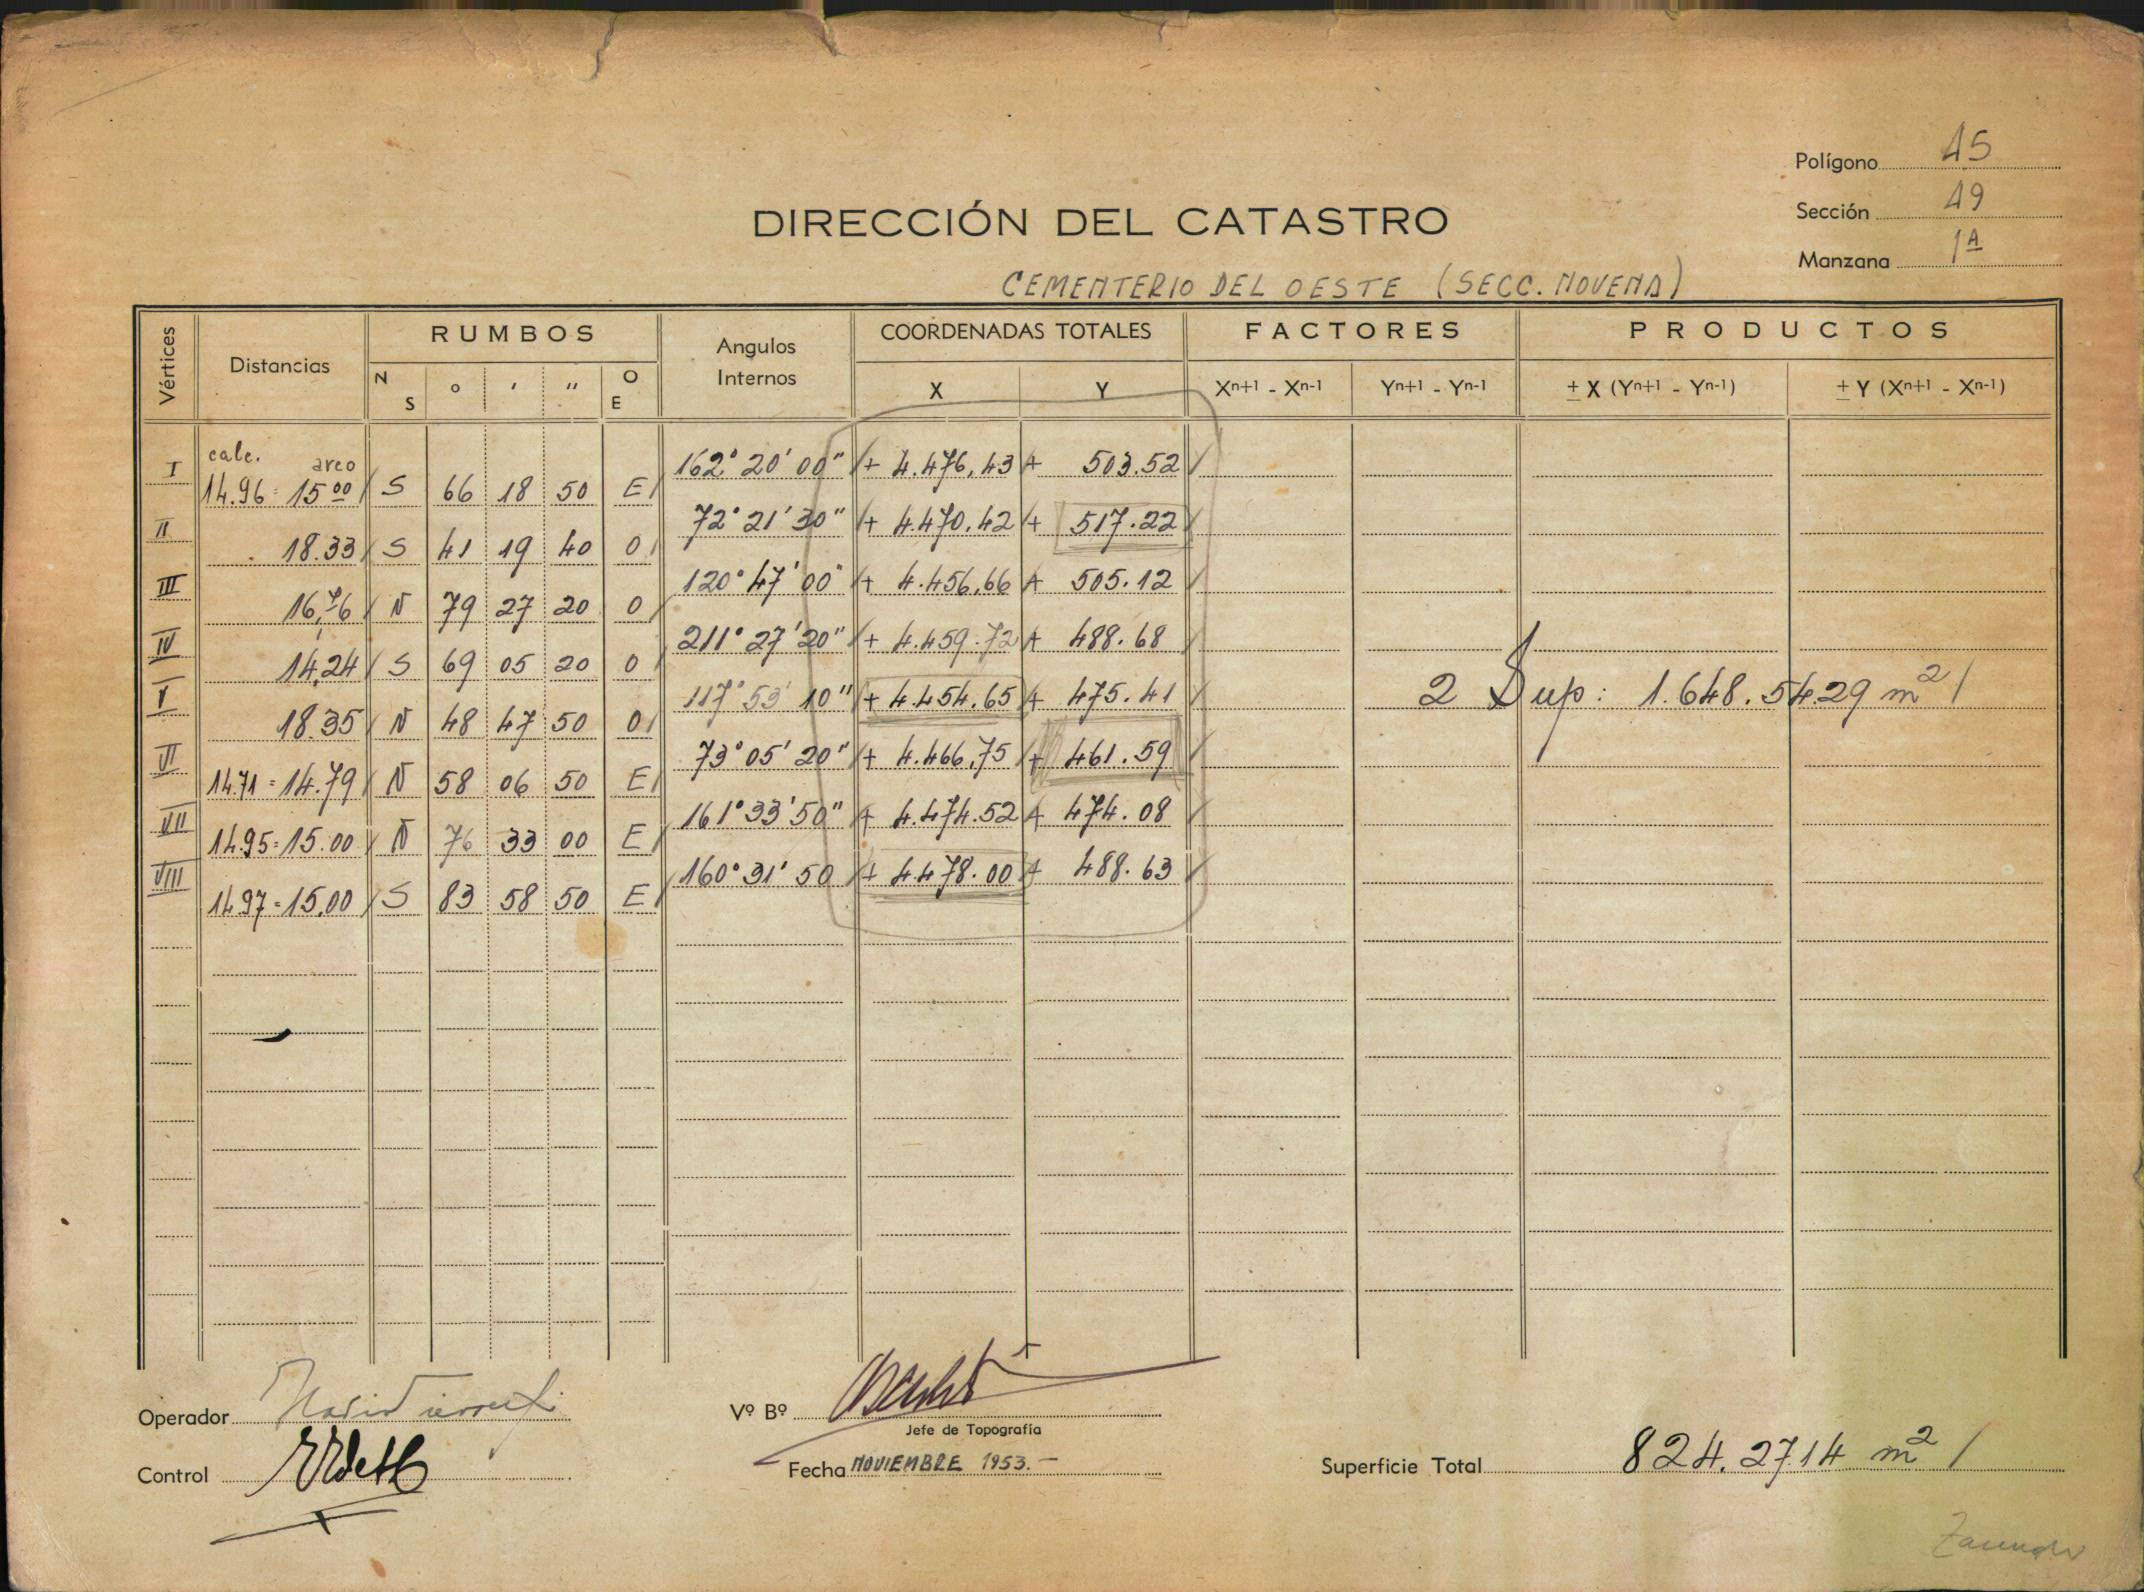 Polígono 45
Sección 19
Manzana 1A
DIRECCIÓN DEL CATASTRO
CEMENTERIO DEL OESTE (SECC. NOVENA)
Vértices Distancias RUMBOS Angulos Internos COORDENADAS TOTALES FACTORES PRODUCTOS
N S ° ' " O E X Y Xn+1 - Xn-1 Yn+1 - Yn-1 ± X (Yn+1 - Yn-1) ± Y (Xn+1 - Xn-1)
calc. arco
I 162° 20' 00" + 4.476,43 + 503.52
14.96 = 15 00 S 66 18 50 E
II 72° 21' 30" + 4.470.42 + 517.22
18.33 S 41 19 40 O
III 120° 47' 00" + 4.456,66 + 505.12
16,76 N 79 27 20 O
IV 211° 27' 20" + 4.459.72 + 488.68
14,24 S 69 05 20 O
V 117° 53' 10" + 4.454.65 + 475.41
2 Sup: 1.648.5429 m2
18.35 N 48 47 50 O
VI 73° 05' 20" + 4.466,75 + 461.59
14.71 = 14.79 N 58 06 50 E
VII 161° 33' 50" + 4.474.52 + 474.08
14.95 = 15.00 N 76 33 00 E
VIII 160° 31' 50 + 4.478.00 + 488.63
14.97 = 15,00 S 83 58 50 E
Operador
Vº Bº
Jefe de Topografía
Control
Fecha NOVIEMBRE 1953.-
Superficie Total 824.2714 m2